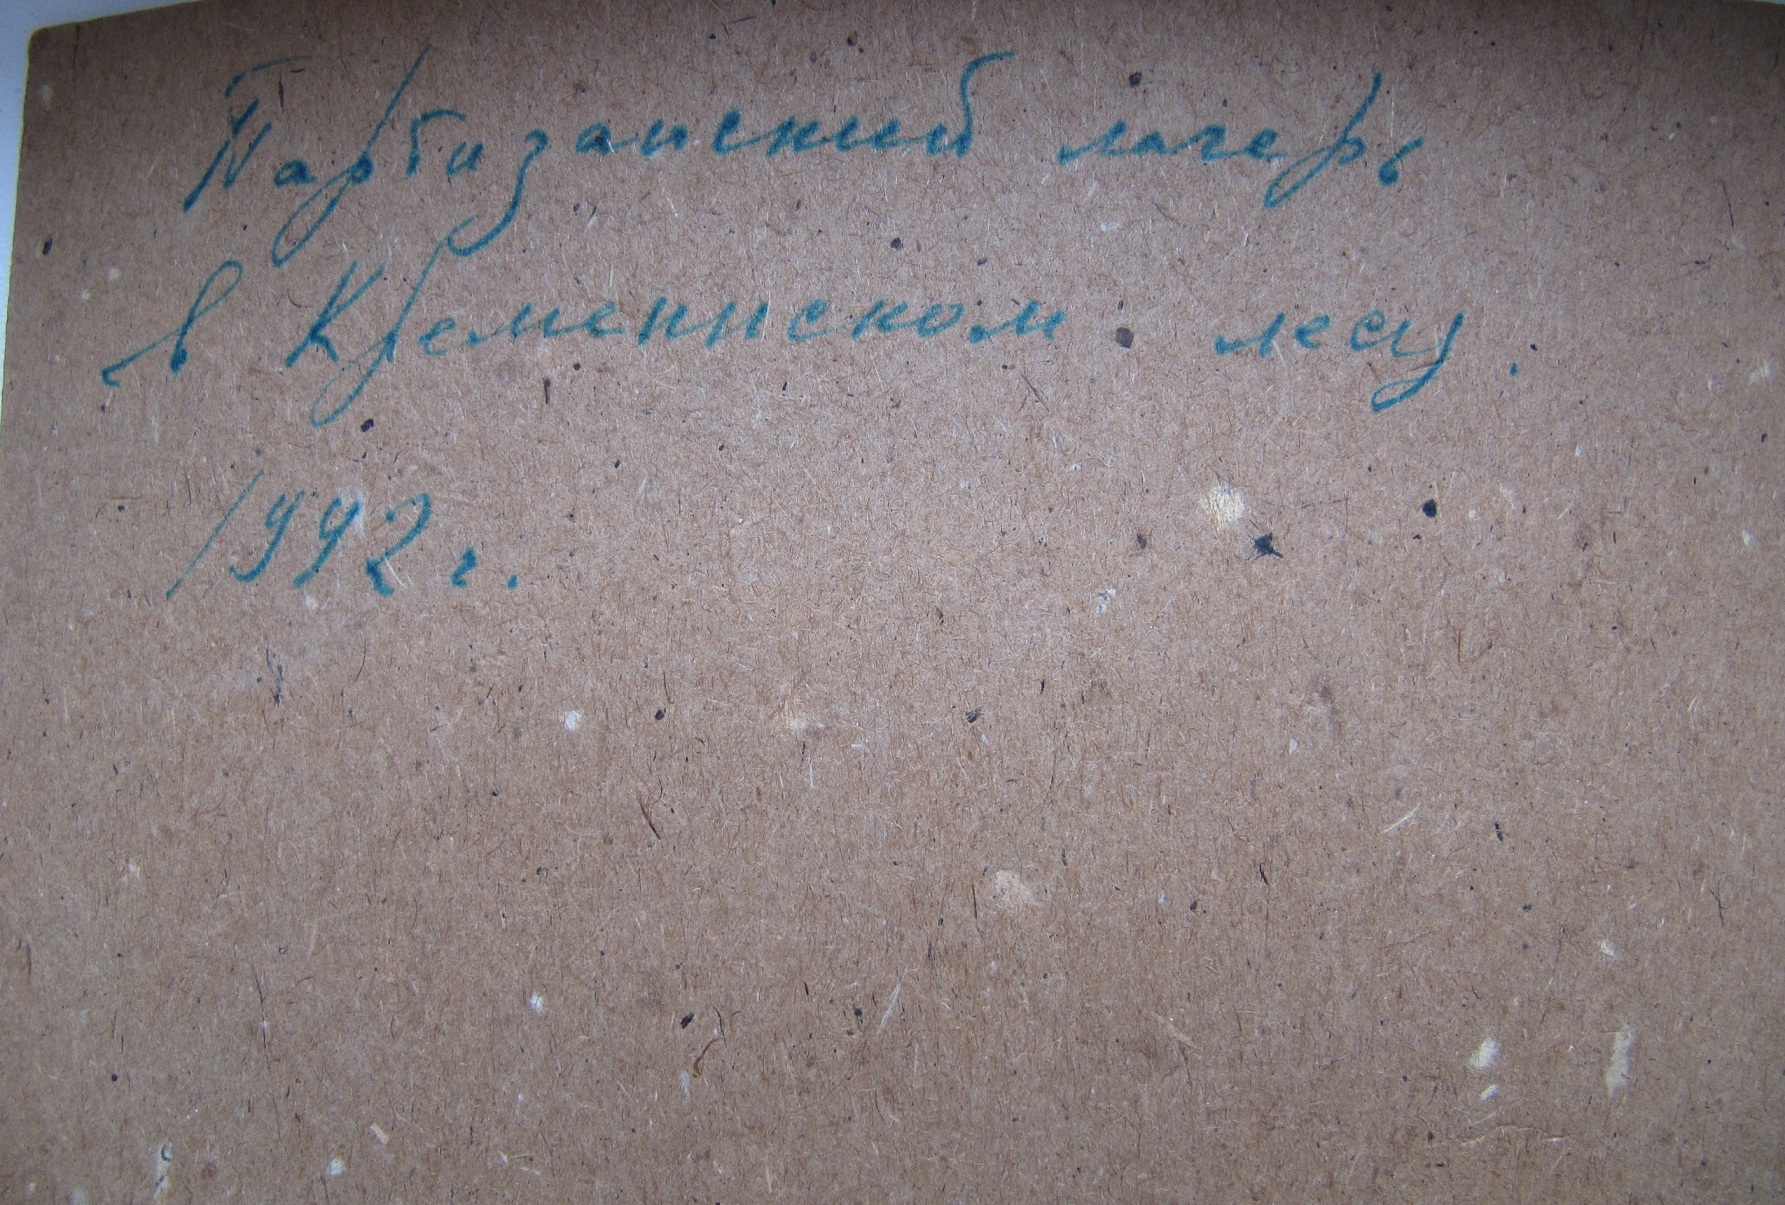 Партизанский лагерь
в Кременнском лесу.
1992 г.